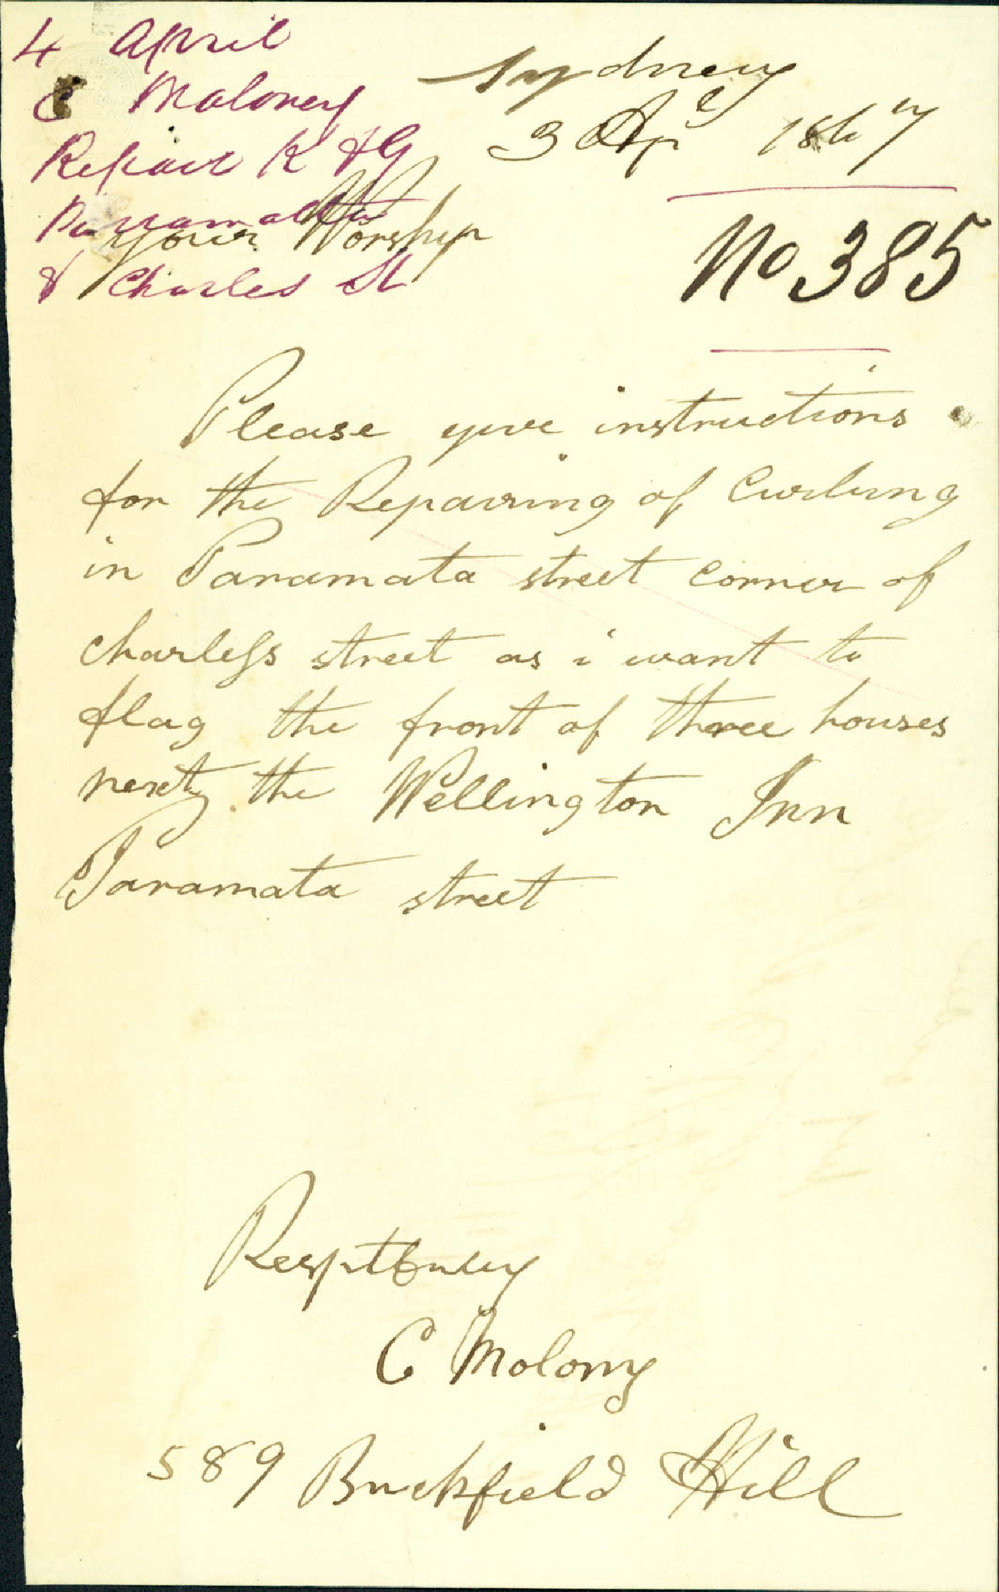 4 April
C Maloney
Repair K & G
Parramatta
& Charles St
Sydney
3 Apl 1867
No 385
your Worship
Please give instructions
for the Repairing of Curbing
in Paramata street corner of
charless street as i want to
flag the front of three houses
next the Wellington Inn
Paramata street
C Molony
589 Brickfield Hill